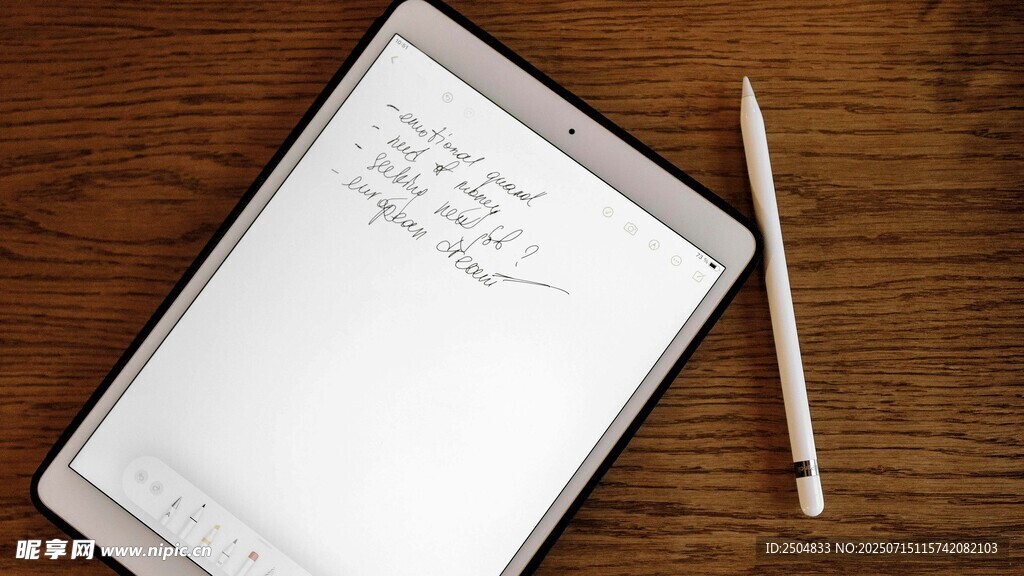 10:41
- emotional quard
- need of money
- seeking new job?
- european dream
73 %
昵享网 www.nipic.cn
ID:2504833 NO:20250715115742082103